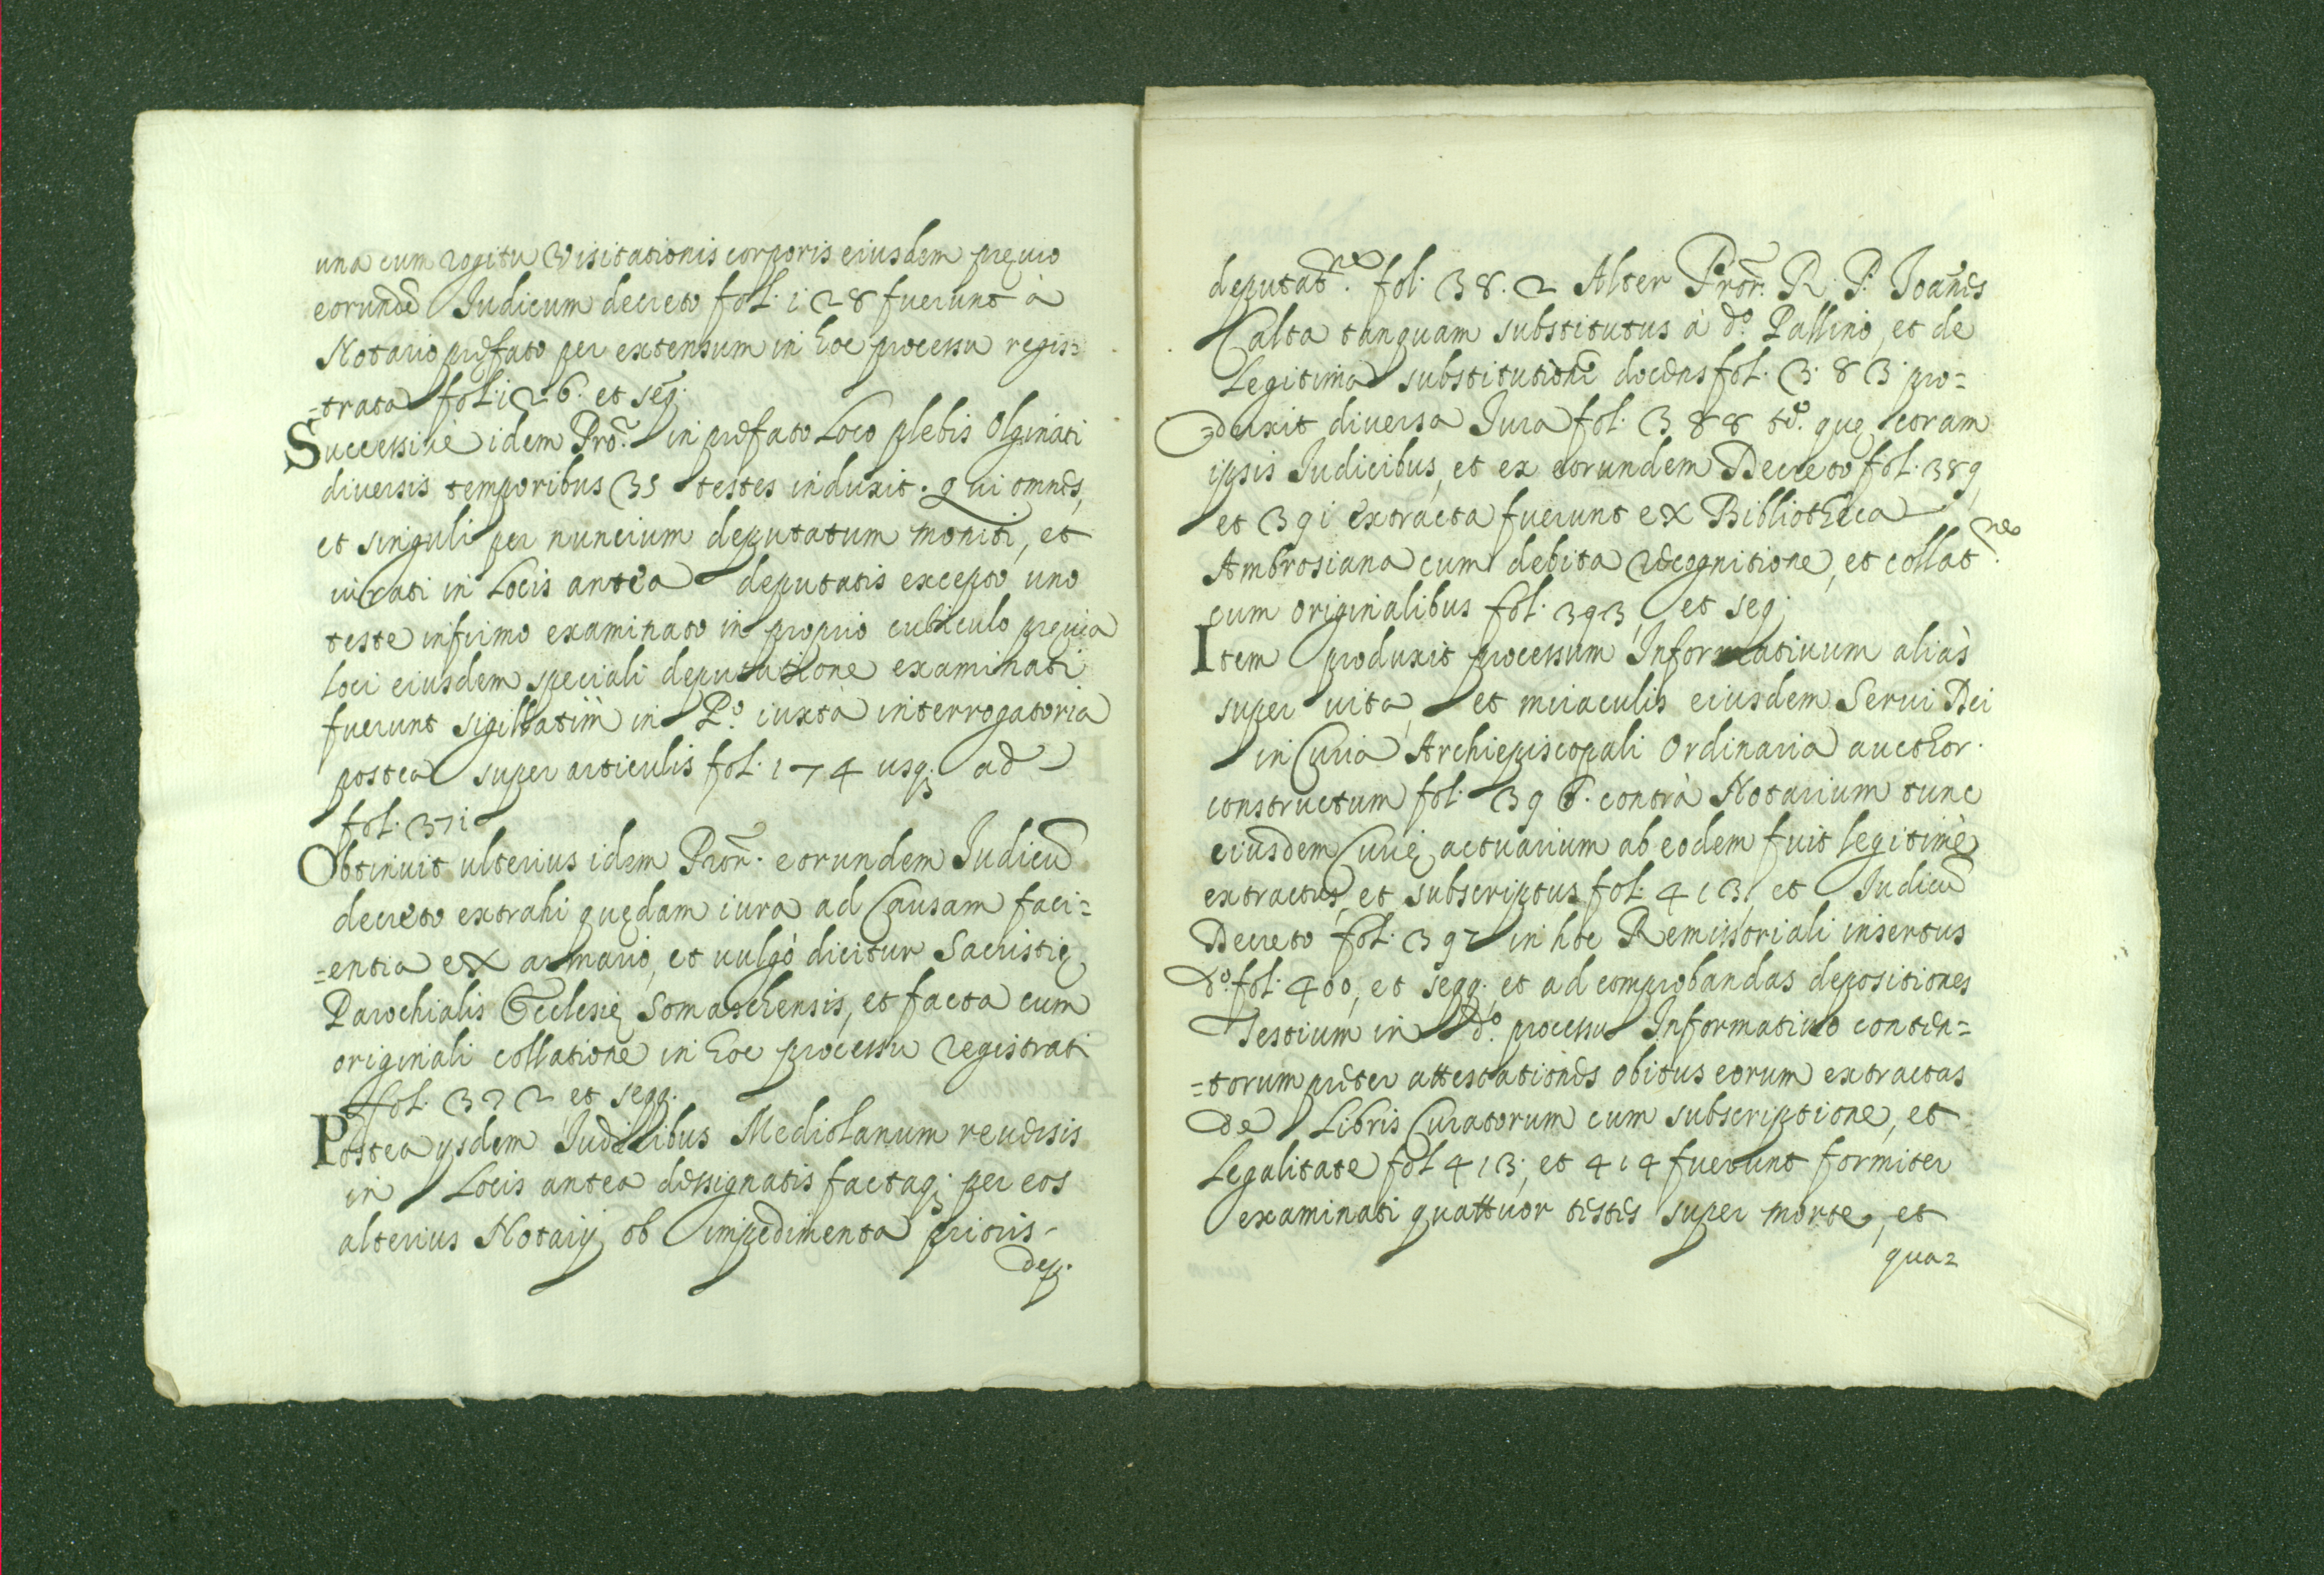 una cum rogitu Visitationis corporis eiusdem pręuio
eorundē Iudicum decreto fol. 128 fuerunt à
Notario pręfato per extensum in hoc processu regis=
=trata fol. 126. et seq.
Successiuè idem Prōr. in pręfato Loco plebis Olginati
diuersis temporibus 35 testes induxit. qui omnes,
et singuli per nuncium deputatum moniti, et
iurati in Locis antea deputatis excepto uno
teste infirmo examinato in proprio cubiculo pręuia
loci eiusdem speciali deputatione examinati
fuerunt sigillatim in P.o iuxtà interrogatoria
postea super articulis fol. 174 usq; ad
fol. 371
Obtinuit ulterius idem Prōr. eorundem Iudicū
decreto extrahi quędam iura ad Causam faci=
=entia ex armario, et uulgò dicitur Sacristię
Parochialis Ecclesię Somaschensis, et facta cum
originali collatione in hoc processu registrati
fol. 372 et seqq.
Postea ysdem Iudicibus Mediolanum reuersis
in Locis antea dessignatis factaq; per eos
alterius Notarij ob impedimenta prioris
dep.
deputat.ne fol. 38.2 Alter Prōr. R. P. Ioañes
Calta tanquam substitutus à d.o Pallino, et de
Legitima substitutione docens fol. 383 pro=
=duxit diuersa Iura fol. 388 t.o que coram
ipsis Iudicibus, et ex eorundem Decreto fol. 389,
et 391 extracta fuerunt ex Bibliotheca
Ambrosiana cum debita recognitione, et collat.ne
cum originalibus fol. 393, et seq.
Item produxit processum Informatiuum aliàs
super uita, et miraculis eiusdem Serui Dei
in Curia Archiepiscopali Ordinaria aucthor.
constructum fol. 396. contrà Notarium tunc
eiusdem Curię actuarium ab eodem fuit legitimè
extractus, et subscriptus fol. 413, et Iudicū
Decreto fol. 397 in hoc Remissoriali insertus
d.o fol. 400, et seqq. et ad comprobandas depositiones
Testium in d.o processu Informatiuo conten=
=torum pręter attestationes obitus eorum extractas
de Libris Curatorum cum subscriptione, et
Legalitate fol 413, et 414 fuerunt formiter
examinati quattuor testes super morte, et
qua=